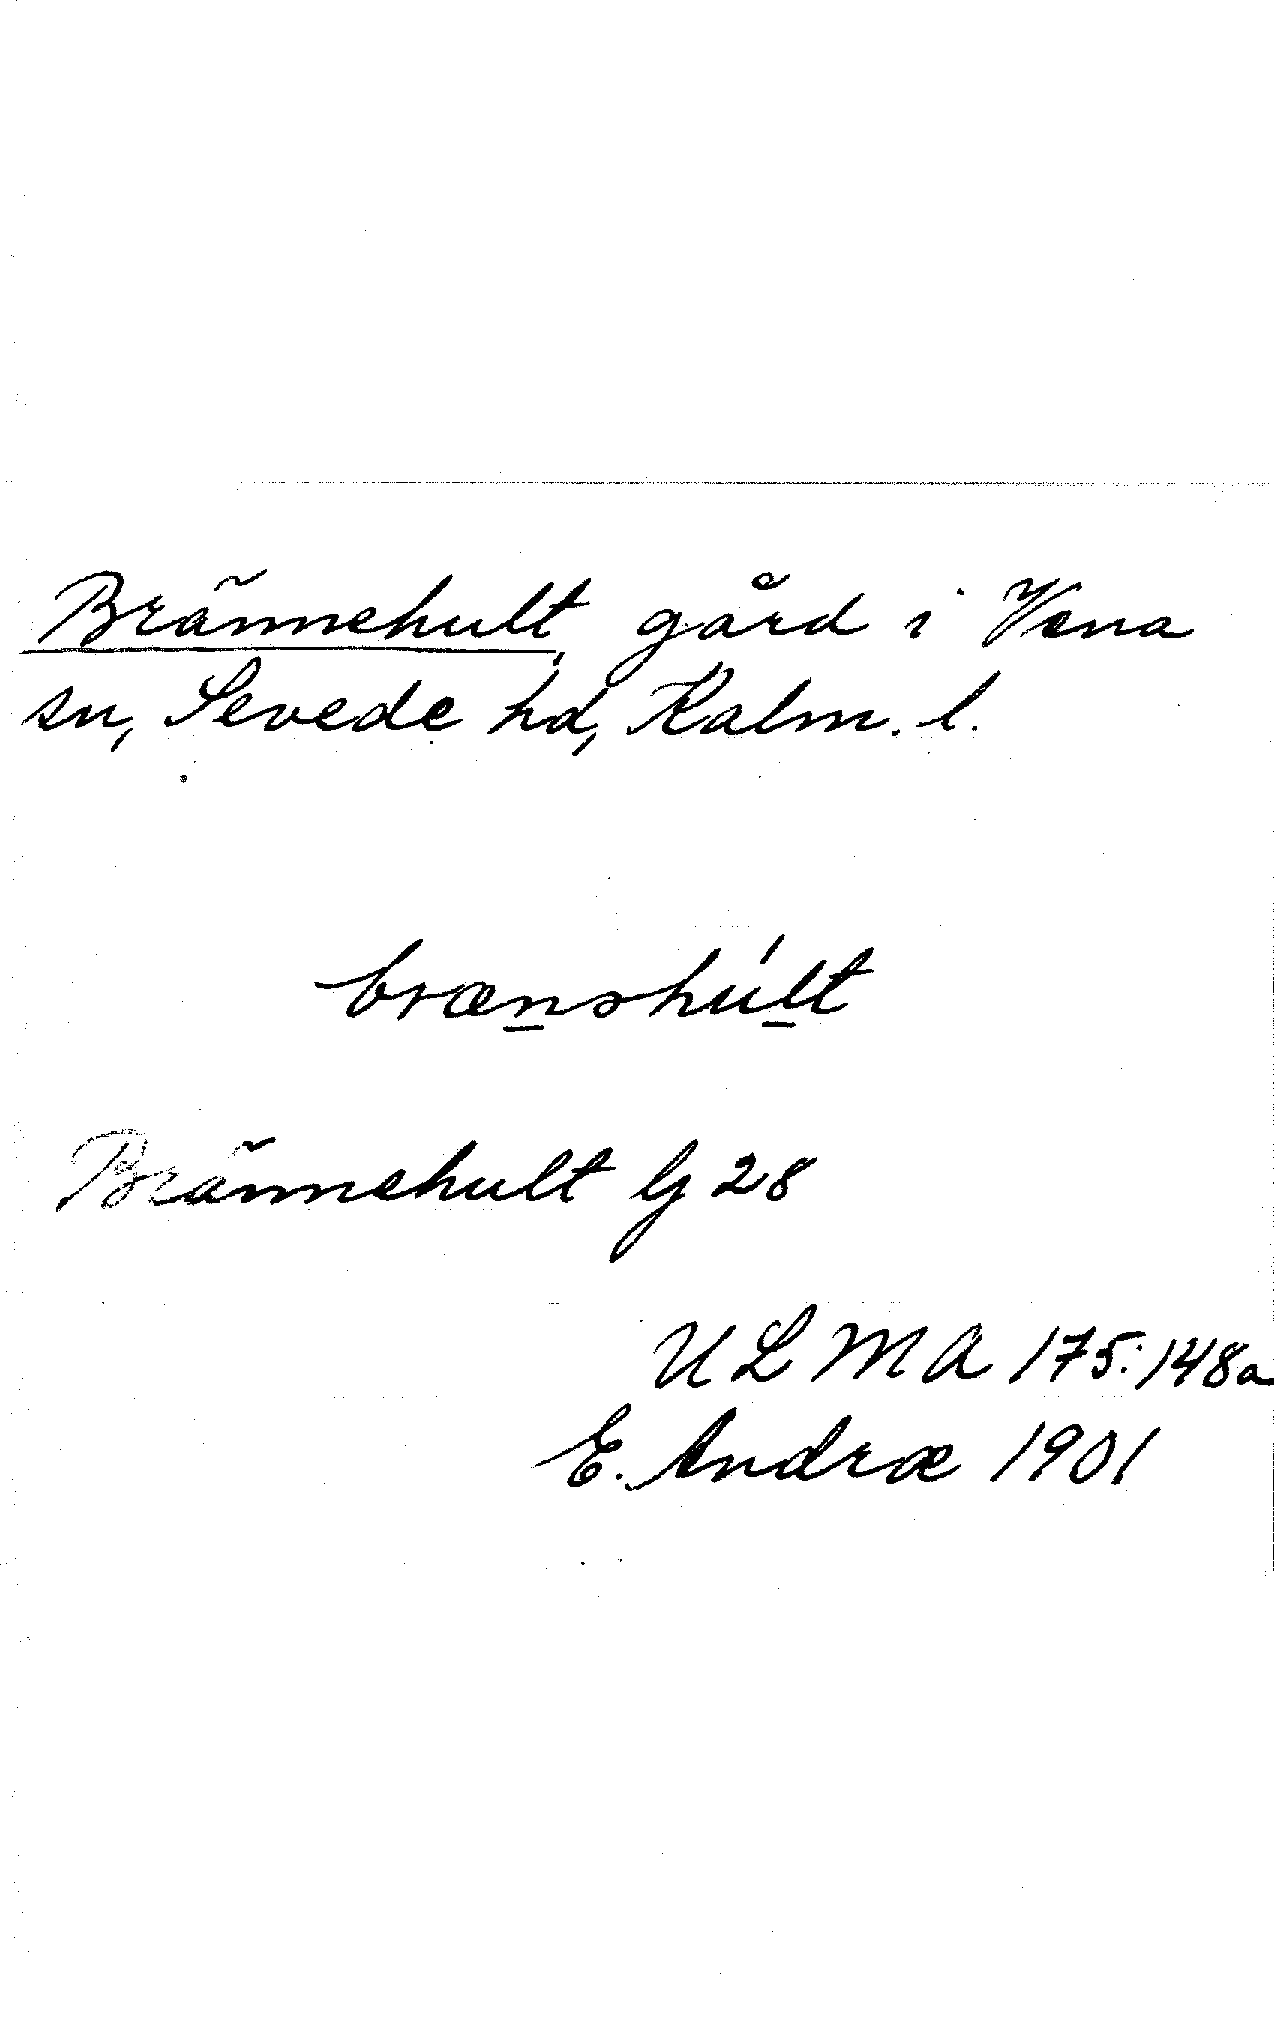 Brännehult, gård i Vena
sn, Sevede hd, Kalm. l.
brænəhúlt
Brännehult Gj 28
ULMA 175:148a
E. Andræ 1901